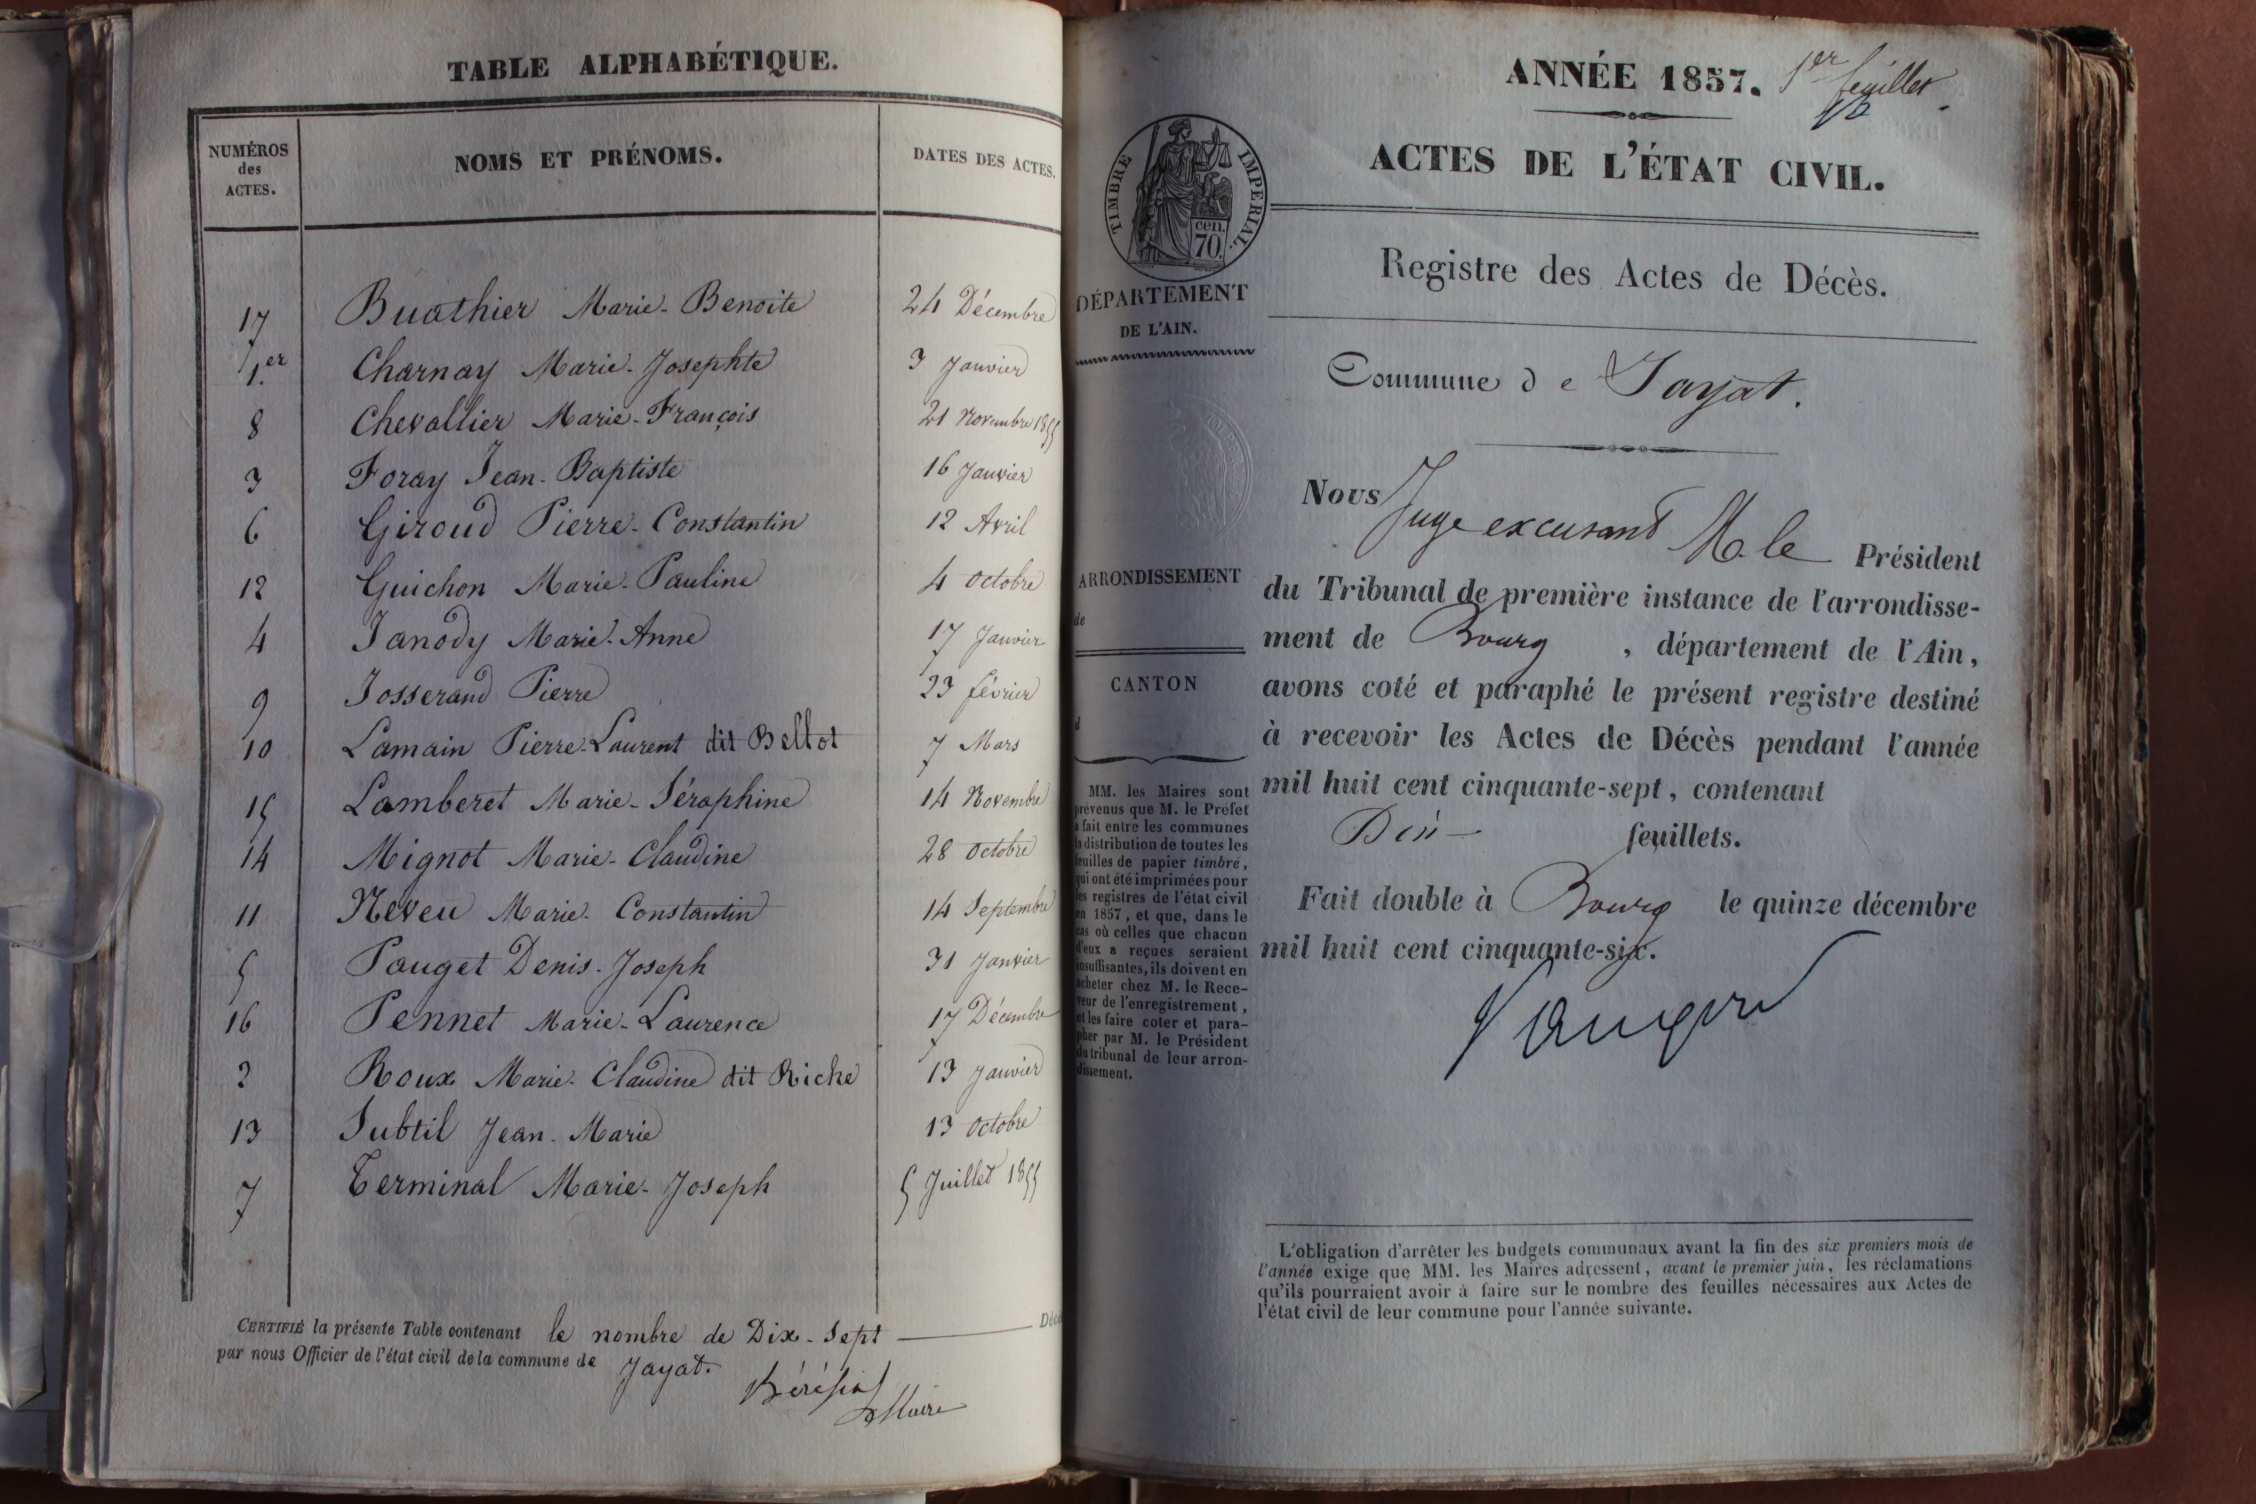 TABLE ALPHABÉTIQUE.
NUMÉROS des ACTES. NOMS ET PRÉNOMS. DATES DES ACTES.
17 Buathier Marie-Benoite 24 Décembre
1.er Charnay Marie-Josephte 3 Janvier
8 Chevallier Marie-François 21 Novembre 1855
3 Foray Jean-Baptiste 16 Janvier
6 Giroud Pierre-Constantin 12 Avril
12 Guichon Marie-Pauline 4 Octobre
4 Janody Marie-Anne 17 Janvier
9 Josserand Pierre 23 février
10 Lamain Pierre-Laurent dit Bellot 7 Mars
15 Lamberet Marie-Séraphine 14 Novembre
14 Mignot Marie-Claudine 28 Octobre
11 Neveu Marie-Constantin 14 Septembre
5 Pauget Denis-Joseph 31 Janvier
16 Pennet Marie-Laurence 17 Décembre
2 Roux Marie-Claudine dit Riche 13 Janvier
13 Subtil Jean-Marie 13 Octobre
7 Terminal Marie-Joseph 5 Juillet 1855
CERTIFIÉ la présente Table contenant le nombre de Dix-Sept
par nous Officier de l'état civil de la commune de Jayat.
Maire
ANNÉE 1857. 1er feuillet
ACTES DE L'ÉTAT CIVIL.
TIMBRE IMPERIAL.
cen.
70.
Registre des Actes de Décès.
DÉPARTEMENT
DE L'AIN.
Commune de Jayat.
ARRONDISSEMENT
de
CANTON
d
MM. les Maires sont
prévenus que M. le Préfet
a fait entre les communes
la distribution de toutes les
feuilles de papier timbré,
qui ont été imprimées pour
les registres de l'état civil
en 1857, et que, dans le
cas où celles que chacun
d'eux a reçues seraient
insuffisantes, ils doivent en
acheter chez M. le Rece-
veur de l'enregistrement,
et les faire coter et para-
pher par M. le Président
du tribunal de leur arron-
dissement.
Nous Juge excusant M. le Président
du Tribunal de première instance de l'arrondisse-
ment de Bourg, département de l'Ain,
avons coté et paraphé le présent registre destiné
à recevoir les Actes de Décès pendant l'année
mil huit cent cinquante-sept, contenant
feuillets.
Fait double à Bourg le quinze décembre
mil huit cent cinquante-six.
L'obligation d'arrêter les budgets communaux avant la fin des six premiers mois de
l'année exige que MM. les Maires adressent, avant le premier juin, les réclamations
qu'ils pourraient avoir à faire sur le nombre des feuilles nécessaires aux Actes de
l'état civil de leur commune pour l'année suivante.